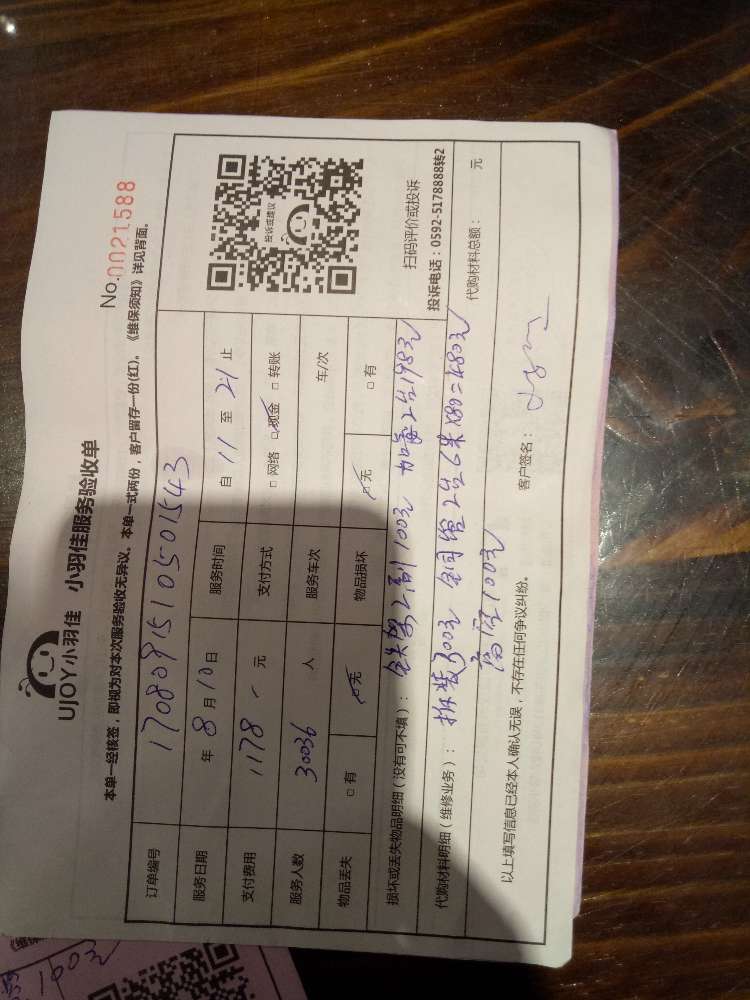 UJOY小羽佳 小羽佳服务验收单
No.0021588
本单一经核签，即视为对本次服务验收无异议。本单一式两份，客户留存一份(红)。《维保须知》详见背面。
订单编号 1708091510501543
服务日期 年 8 月 10 日 服务时间 自 11 至 21 止
支付费用 1178 元 支付方式 □ 网络 □ 现金 □ 转账
服务人数 30036 人 服务车次 车/次
物品丢失 □ 有 □ 无 物品损坏 □ 无 □ 有
投诉或建议
扫码评价或投诉
投诉电话：0592-5178888转2
损坏或丢失物品明细（没有可不填）： 铁架2副100元 加毒2台198元
代购材料明细（维修业务）： 拆装300元 铜管2台6米×80=480元
高空100元
代购材料总额： 元
以上填写信息已经本人确认无误，不存在任何争议纠纷。 客户签名：
100元